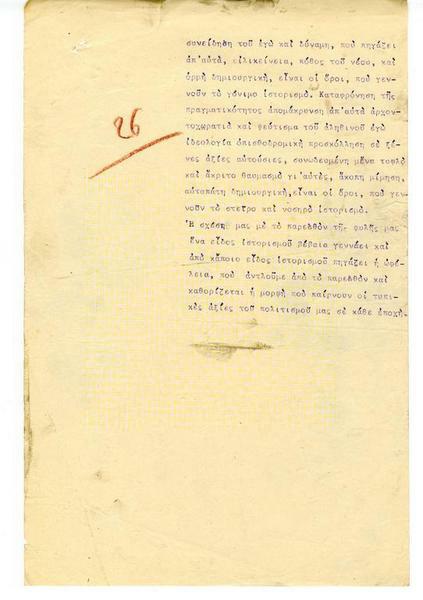 συνείδηση τοῦ ἐγώ καί δύναμη, πού πηγάζει
ἀπ'αὐτά, εἰλικρίνεια, πόθος τοῦ νέου, καί
ὁρμή δημιουργική, εἶναι οἱ ὅροι, πού γεν-
νοῦν τό γόνιμο ἱστορισμό. Καταφρόνηση τῆς
πραγματικότητος ἀπομάκρυνση ἀπ'αὐτά ἀρχον-
τοχωρατιά καί ψεύτισμα τοῦ ἀληθινοῦ ἐγώ
ἰδεολογία ὀπισθοδρομική προσκόλληση σέ ξέ-
νες ἀξίες αὐτούσιες, συνωδευμένη μένα τυφλό
καί ἄκριτο θαυμασμό γι'αὐτές, ἄκοπη μίμηση,
αὐταπάτη δημιουργική,εἶναι οἱ ὅροι, πού γεν-
νοῦν τό στεῖρο καί νοσηρό ἱστορισμό.
26
Ἡ σχέση μας μέ τό παρελθόν τῆς φυλῆς μας
ἕνα εἶδος ἱστορισμοῦ βέβαια γεννάει καί
ἀπό κάποιο εἶδος ἱστορισμοῦ πηγάζει ἡ ὠφέ-
λεια, πού ἀντλοῦμε ἀπό τό παρελθόν καί
καθορίζεται ἡ μορφή πού παίρνουν οἱ τυπι-
κές ἀξίες τοῦ πολιτισμοῦ μας σέ κάθε ἐποχή.